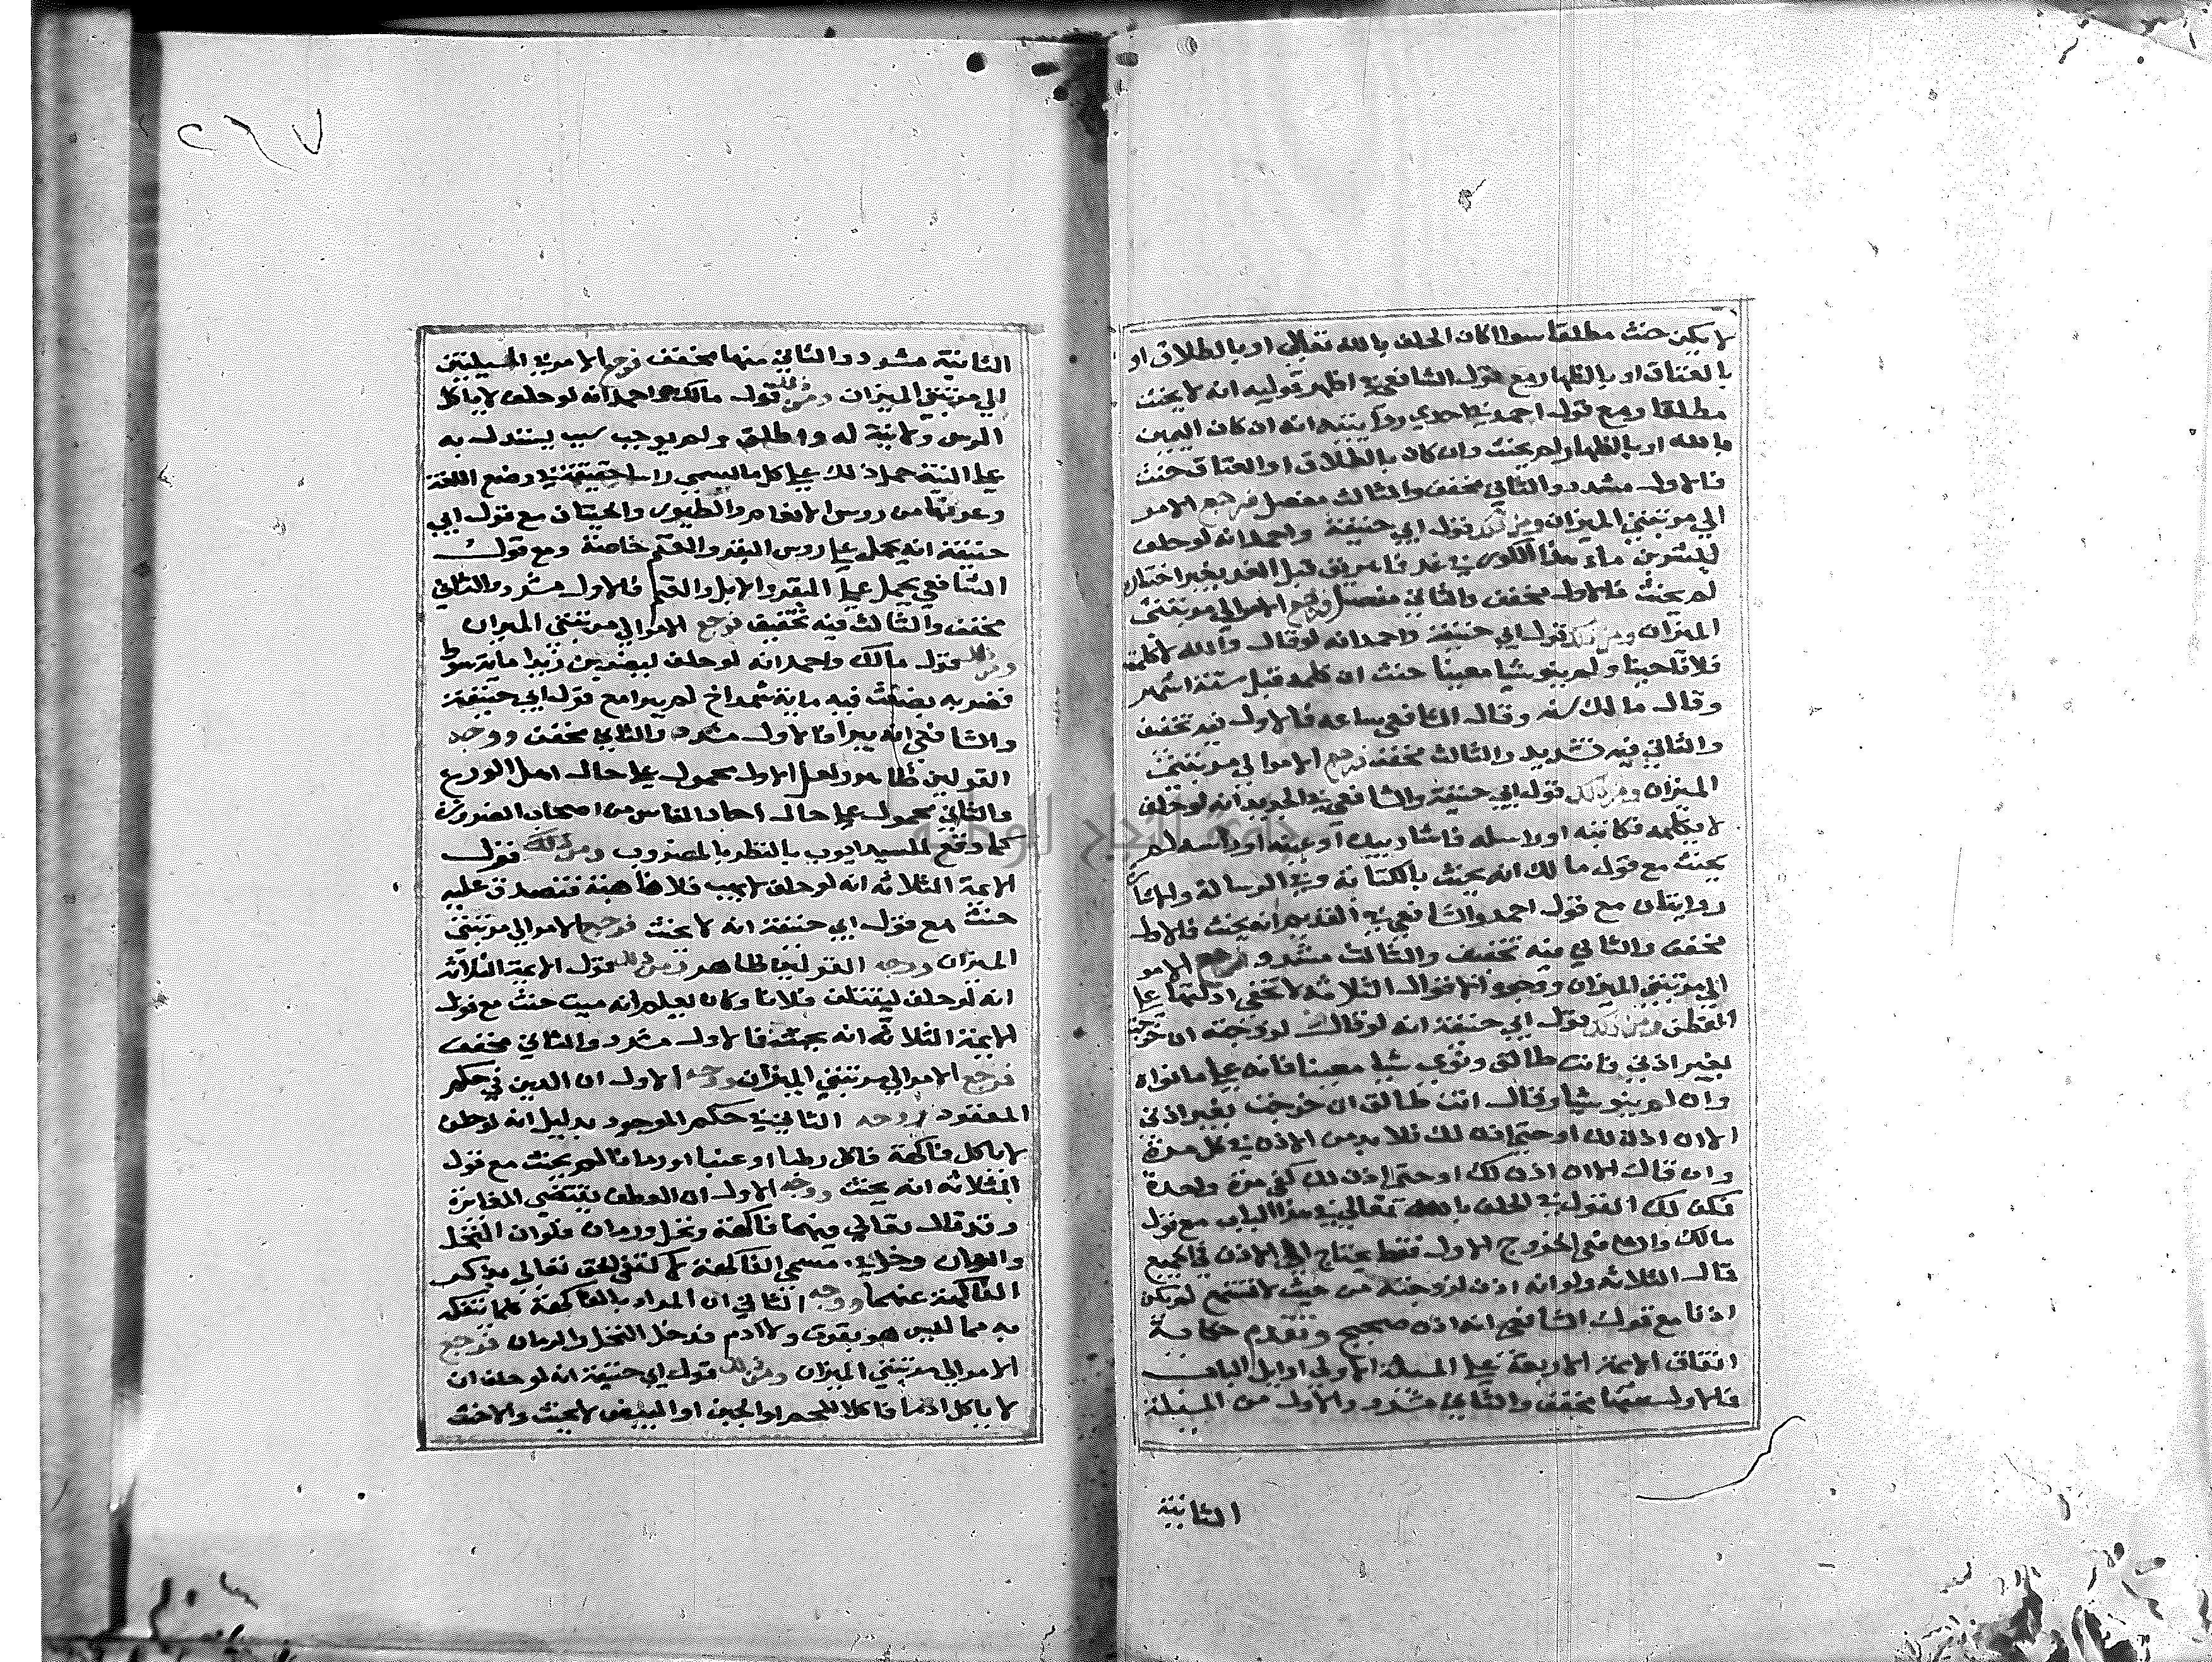 لا يكن حنث مطلقا سوا كان الحلف بالله تعالى او بالطلاق او
بالعتاق او بالظهار مع قول الشافعي في اظهر قوليه انه لا يحنث
مطلقا ومع قول احمد في احدي روايتيه انه ان كان اليمين
بالله او بالظهار لم يحنث وان كان بالطلاق او العتاق حنث
فالاول مشدد والثاني مخفف والثالث مفصل فرجع الامر
الي مرتبتي الميزان ومن ذلك قول ابي حنيفة واحمد انه لو حلف
ليشربن ماء هذا الكوز في غد فاهريق قبل الغد بغير اختياره
لم يحنث فالاول مخفف والثاني مفصل فرجع الامر الي مرتبتي
الميزان ومن ذلك قول ابي حنيفة واحمد انه لو قال والله لا كلمت
فلانا حينا ولم ينو شيا معينا حنث ان كلمه قبل ستة اشهر
وقال مالك سنه وقال الشافعي ساعه فالاول فيه تخفيف
والثاني فيه تشديد والثالث مخفف فرجع الامر الي مرتبتي
الميزان ومن ذلك قول ابي حنيفة والشافعي في الجديد انه لو حلف
لا يكلمه فكاتبه او راسله فاشار بيده او عينه او راسه لم
يحنث مع قول مالك انه يحنث بالكتابة وفي الرسالة والاشارة
روايتان مع قول احمد والشافعي في القديم انه يحنث فالاول
مخفف والثاني فيه تخفيف والثالث مشدد فرجع الامر
الي مرتبتي الميزان ووجوه الاقوال الثلاثه لا تخفي ادلتها علي
الفطن ومن ذلك قول ابي حنيفة انه لو قال لزوجته ان خرجت
بغير اذني فانت طالق ونوي شيا معينا فانه علي ما نواه
وان لم ينو شيا وقال انت طالق ان خرجت بغير اذني
الا ان اذن لك او حتي اذن لك فلا بد من الاذن في كل مرة
وان قال الا ان اذن لك او حتي اذن لك كفي مرة واحدة
فكذلك القول في الحلف بالله تعالي في هذا الباب مع قول
مالك والشافعي الخروج الاول فقط يحتاج الي الاذن في الجميع
قال الثلاثه ولو انه اذن لزوجته من حيث لا تسمع لم يكن
اذنا مع قول الشافعي انه اذن صحيح وتقدم حكاية
اتفاق الايمة الاربعة علي المسلة الاولي اوايل الباب
فالاول منها مخفف والثاني مشدد والاول من المسئلة
الثانية
٢٦٧
الثانية مشدد والثاني منها مخفف فرجع الامر في المسيلتين
الي مرتبتي الميزان ومن ذلك قول مالك واحمد انه لو حلف لا ياكل
الروس ولا نية له واطلق ولم يوجب سبب يستدل به
علي النية حمل ذلك علي كل ما يسمي راسا حقيقة في وضع اللغة
وعرفها من روس الانعام والطيور والحيتان مع قول ابي
حنيفة انه يحمل علي روس البقر والغنم خاصة ومع قول
الشافعي يحمل علي البقر والابل والغنم فالاول مشدد والثاني
مخفف والثالث فيه تخفيف فرجع الامر الي مرتبتي الميزان
ومن ذلك قول مالك واحمد انه لو حلف ليضربن زيدا ماية سوط
فضربه بضغث فيه ماية شمراخ لم يبرا مع قول ابي حنيفة
والشافعي انه يبرا فالاول مشدد والثاني مخفف ووجه
القولين ظاهر ولعل الاول محمول علي حال اهل الورع
والثاني محمول علي حال احاد الناس من اصحاب الضرورة
كما وقع للسيد ايوب بالنظر بالمضروب ومن ذلك قول
الايمة الثلاثه انه لو حلف لا يهب فلانا هبة فتصدق عليه
حنث مع قول ابي حنيفة انه لا يحنث فرجع الامر الي مرتبتي
الميزان ووجه القولين ظاهر ومن ذلك قول الايمة الثلاثه
انه لو حلف ليقتلن فلانا وكان يعلم انه ميت حنث مع قول
الايمة الثلاثه انه يحنث فالاول مشدد والثاني مخفف
فرجع الامر الي مرتبتي الميزان ووجه الاول ان الدين في حكم
المفقود ووجه الثاني في حكم الموجود بدليل انه لو حلف
لا ياكل فاكهة فاكل رطبا او عنبا او رمانا لم يحنث مع قول
الثلاثه انه يحنث ووجه الاول ان العطف يقتضي المغايرة
وقد قال تعالي فيهما فاكهة ونخل ورمان فلو ان النخل
والرمان دخلا في مسمي الفاكهة لاكتفي الحق تعالي بذكر
الفاكهة عنهما ووجه الثاني ان المراد بالفاكهة كلما يتفكه
به مما ليس هو بقوت ولا ادم فدخل النخل والرمان فرجع
الامر الي مرتبتي الميزان ومن ذلك قول ابي حنيفة انه لو حلف ان
لا ياكل ادما فاكل اللحم او الجبن او البيض لا يحنث والا حنث